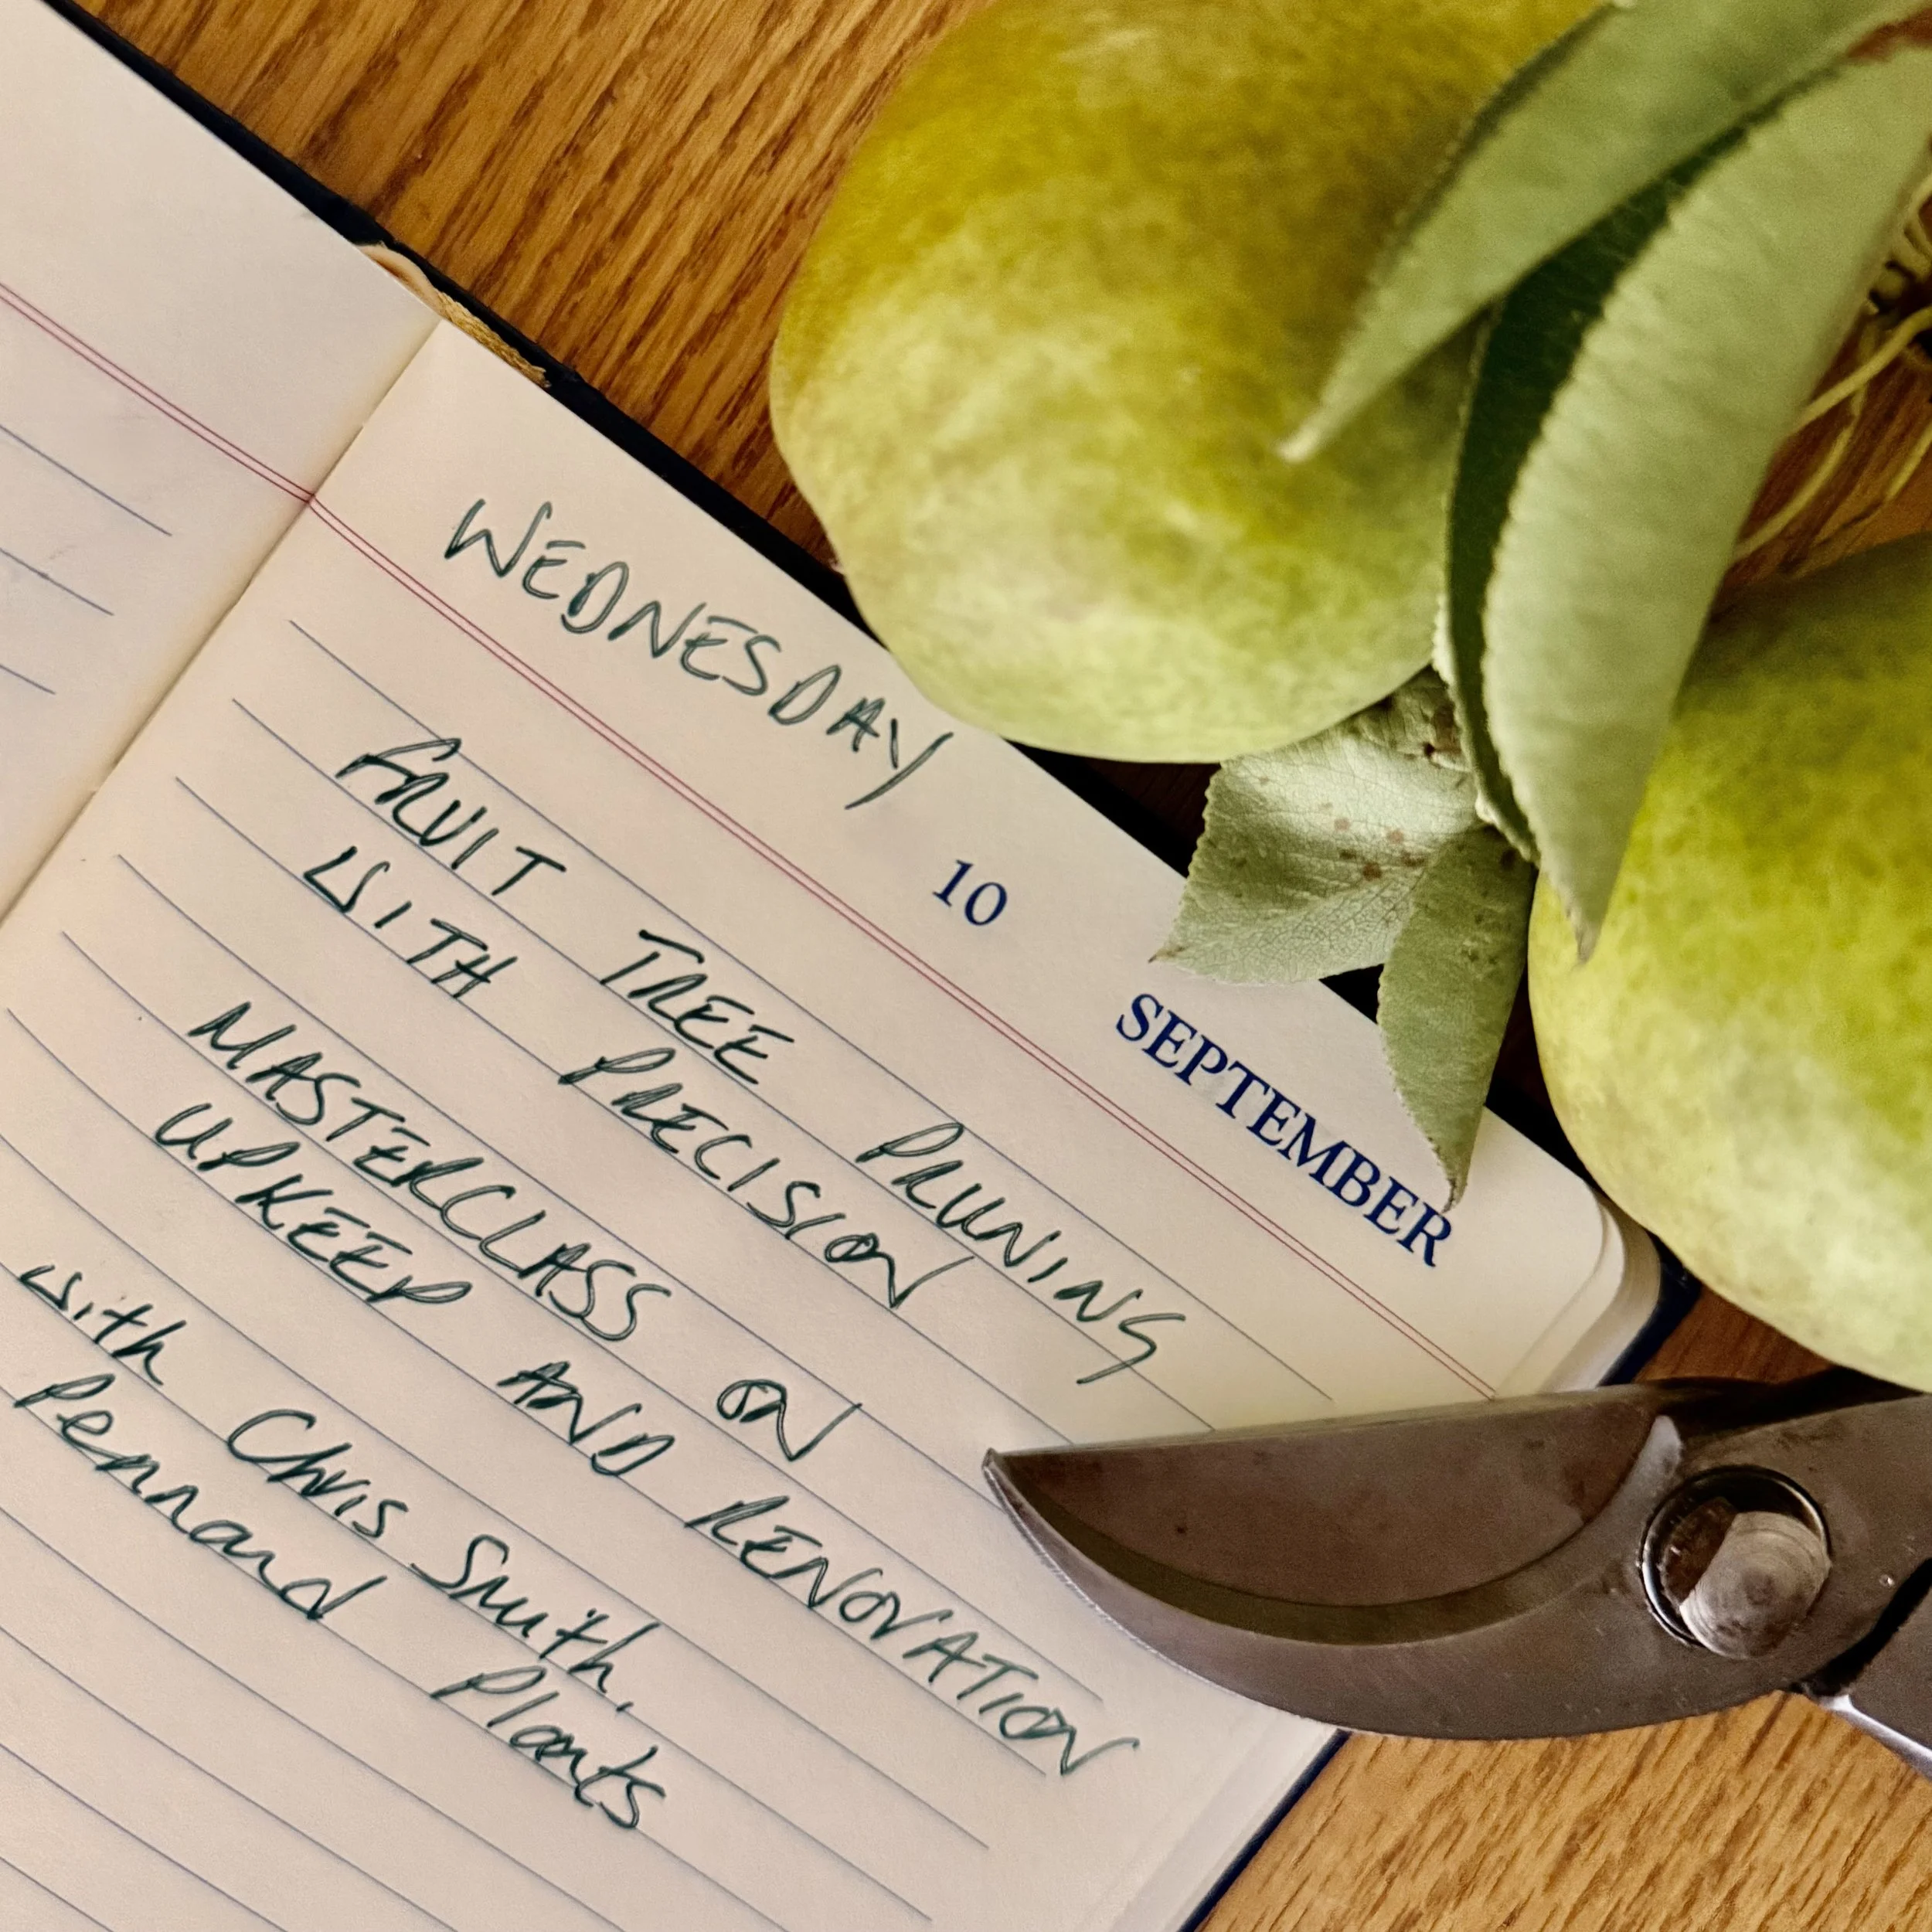 WEDNESDAY
10
SEPTEMBER
FRUIT TREE PRUNING
WITH PRECISION
MASTERCLASS ON
UPKEEP AND RENOVATION
with Chris Smith,
Pennard Plants